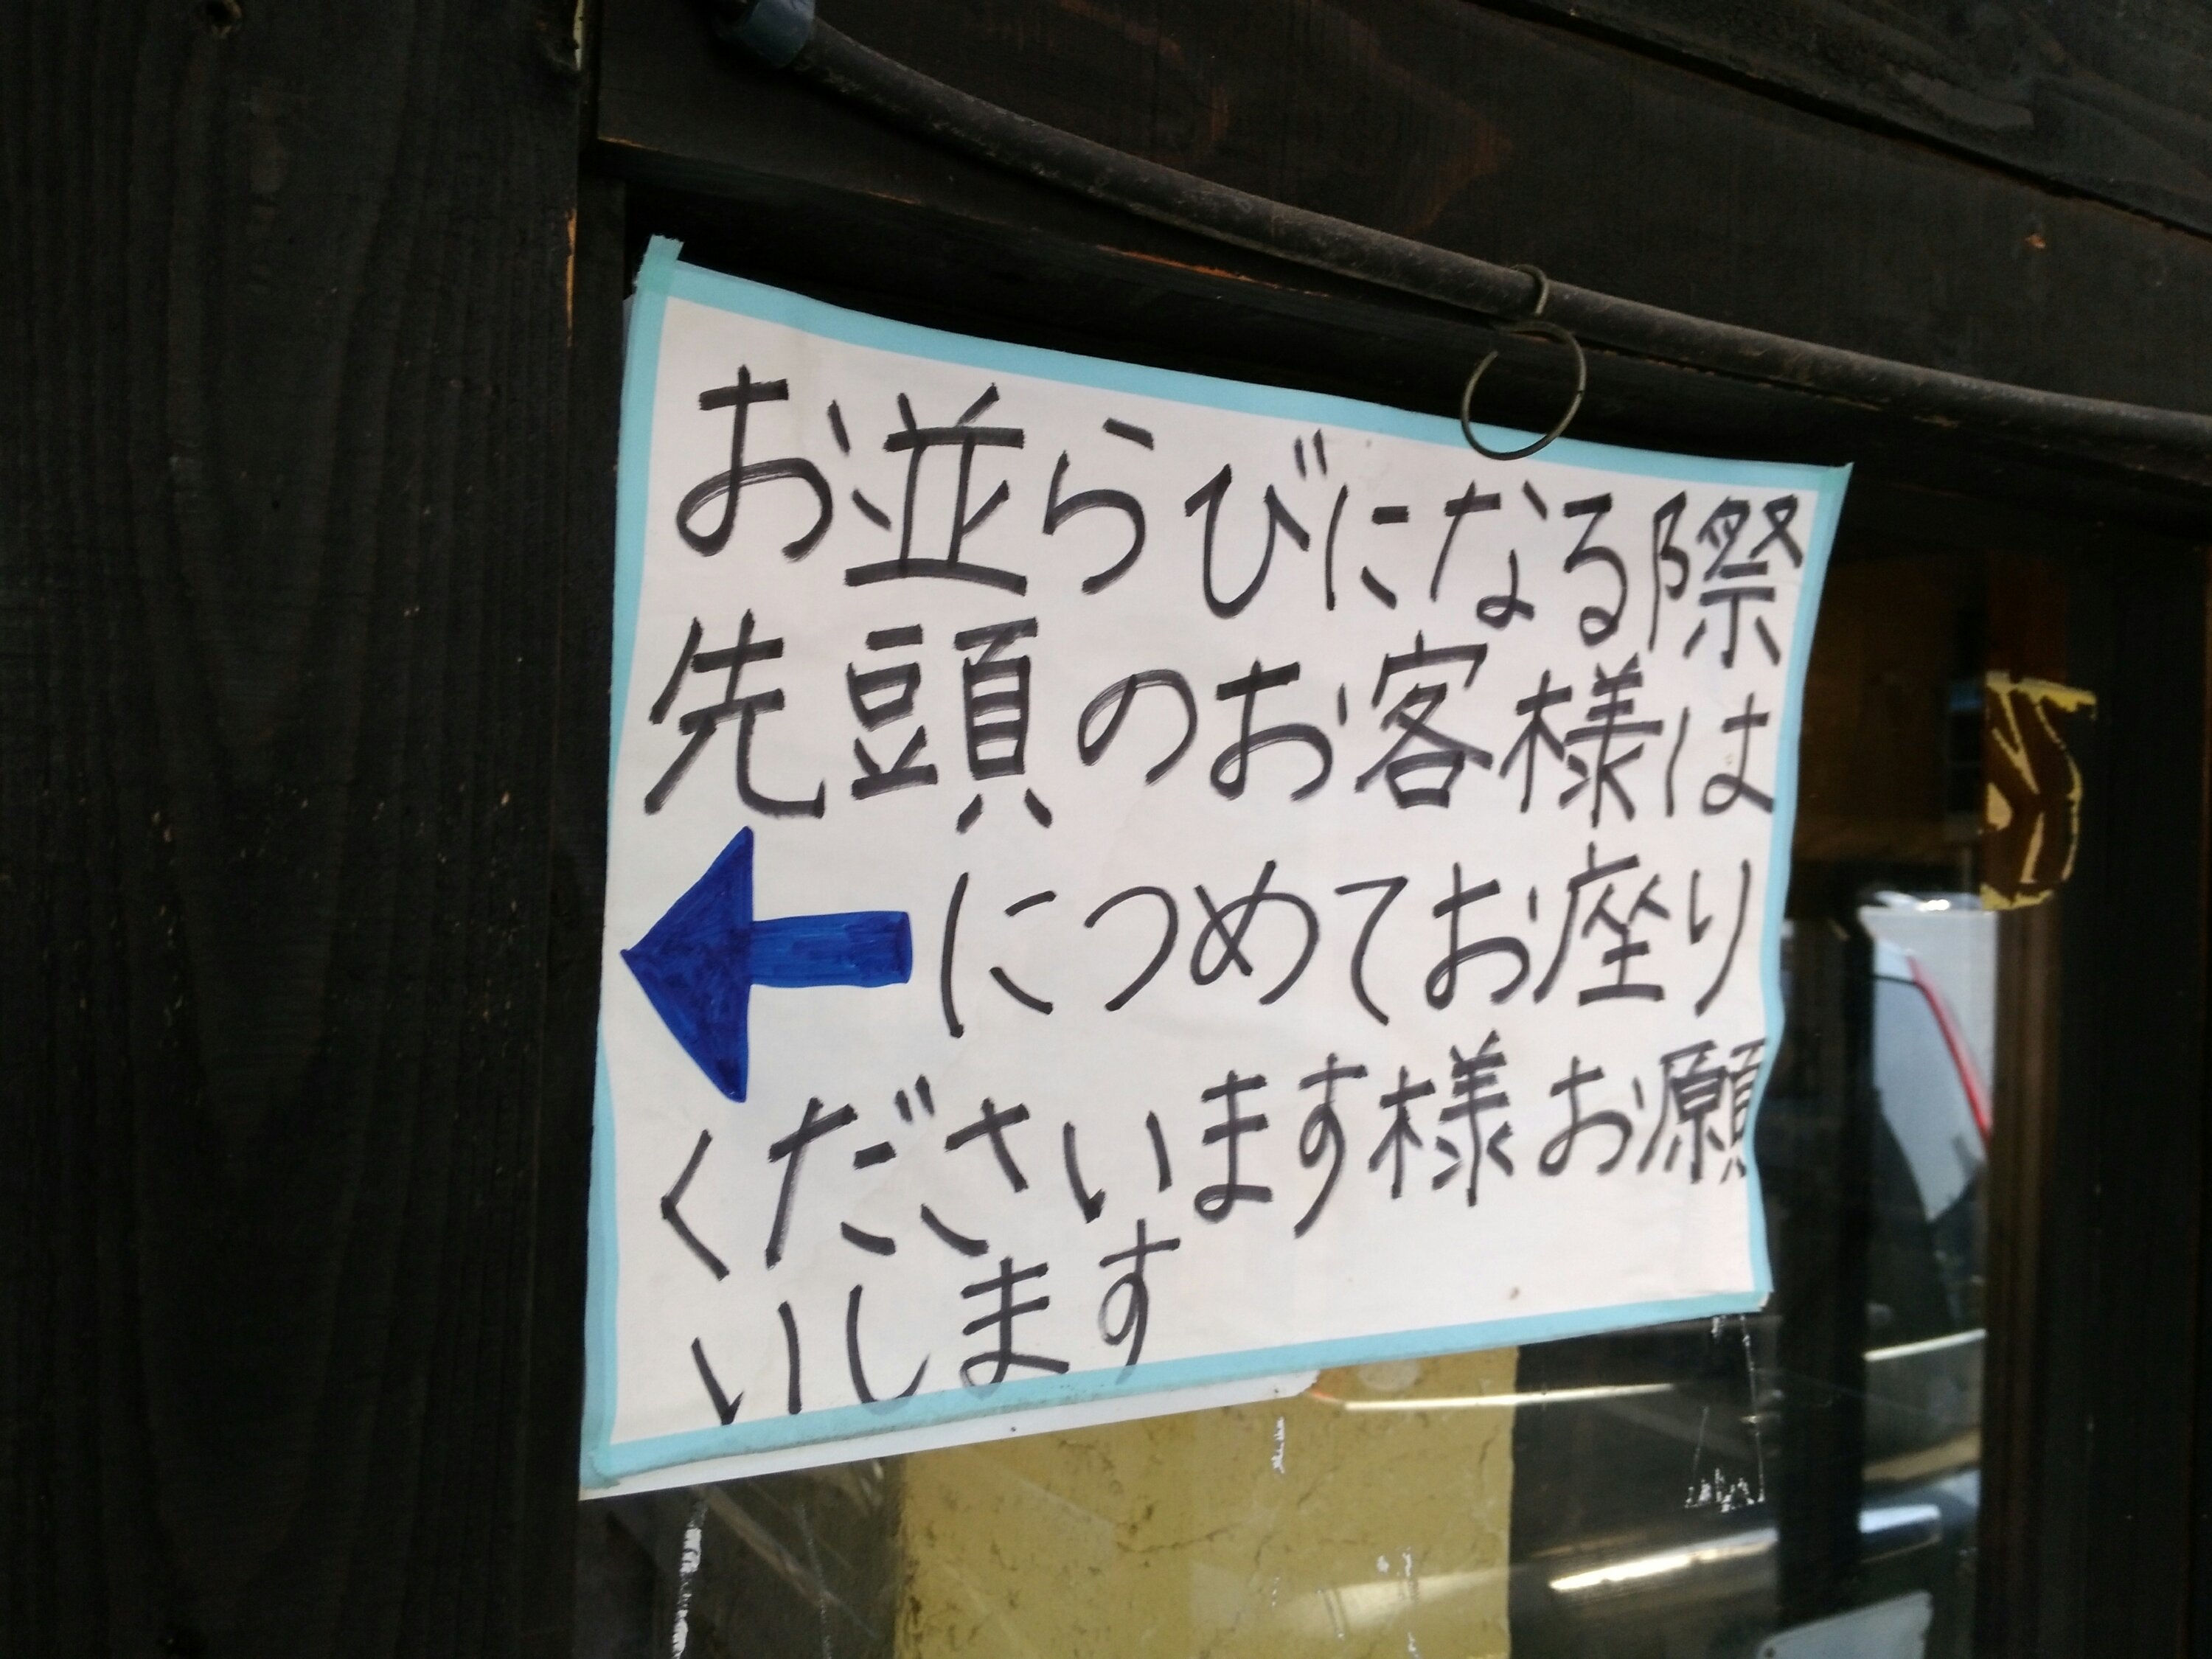 お並らびになる際
先頭のお客様は
←につめてお座り
くださいます様お願
いします